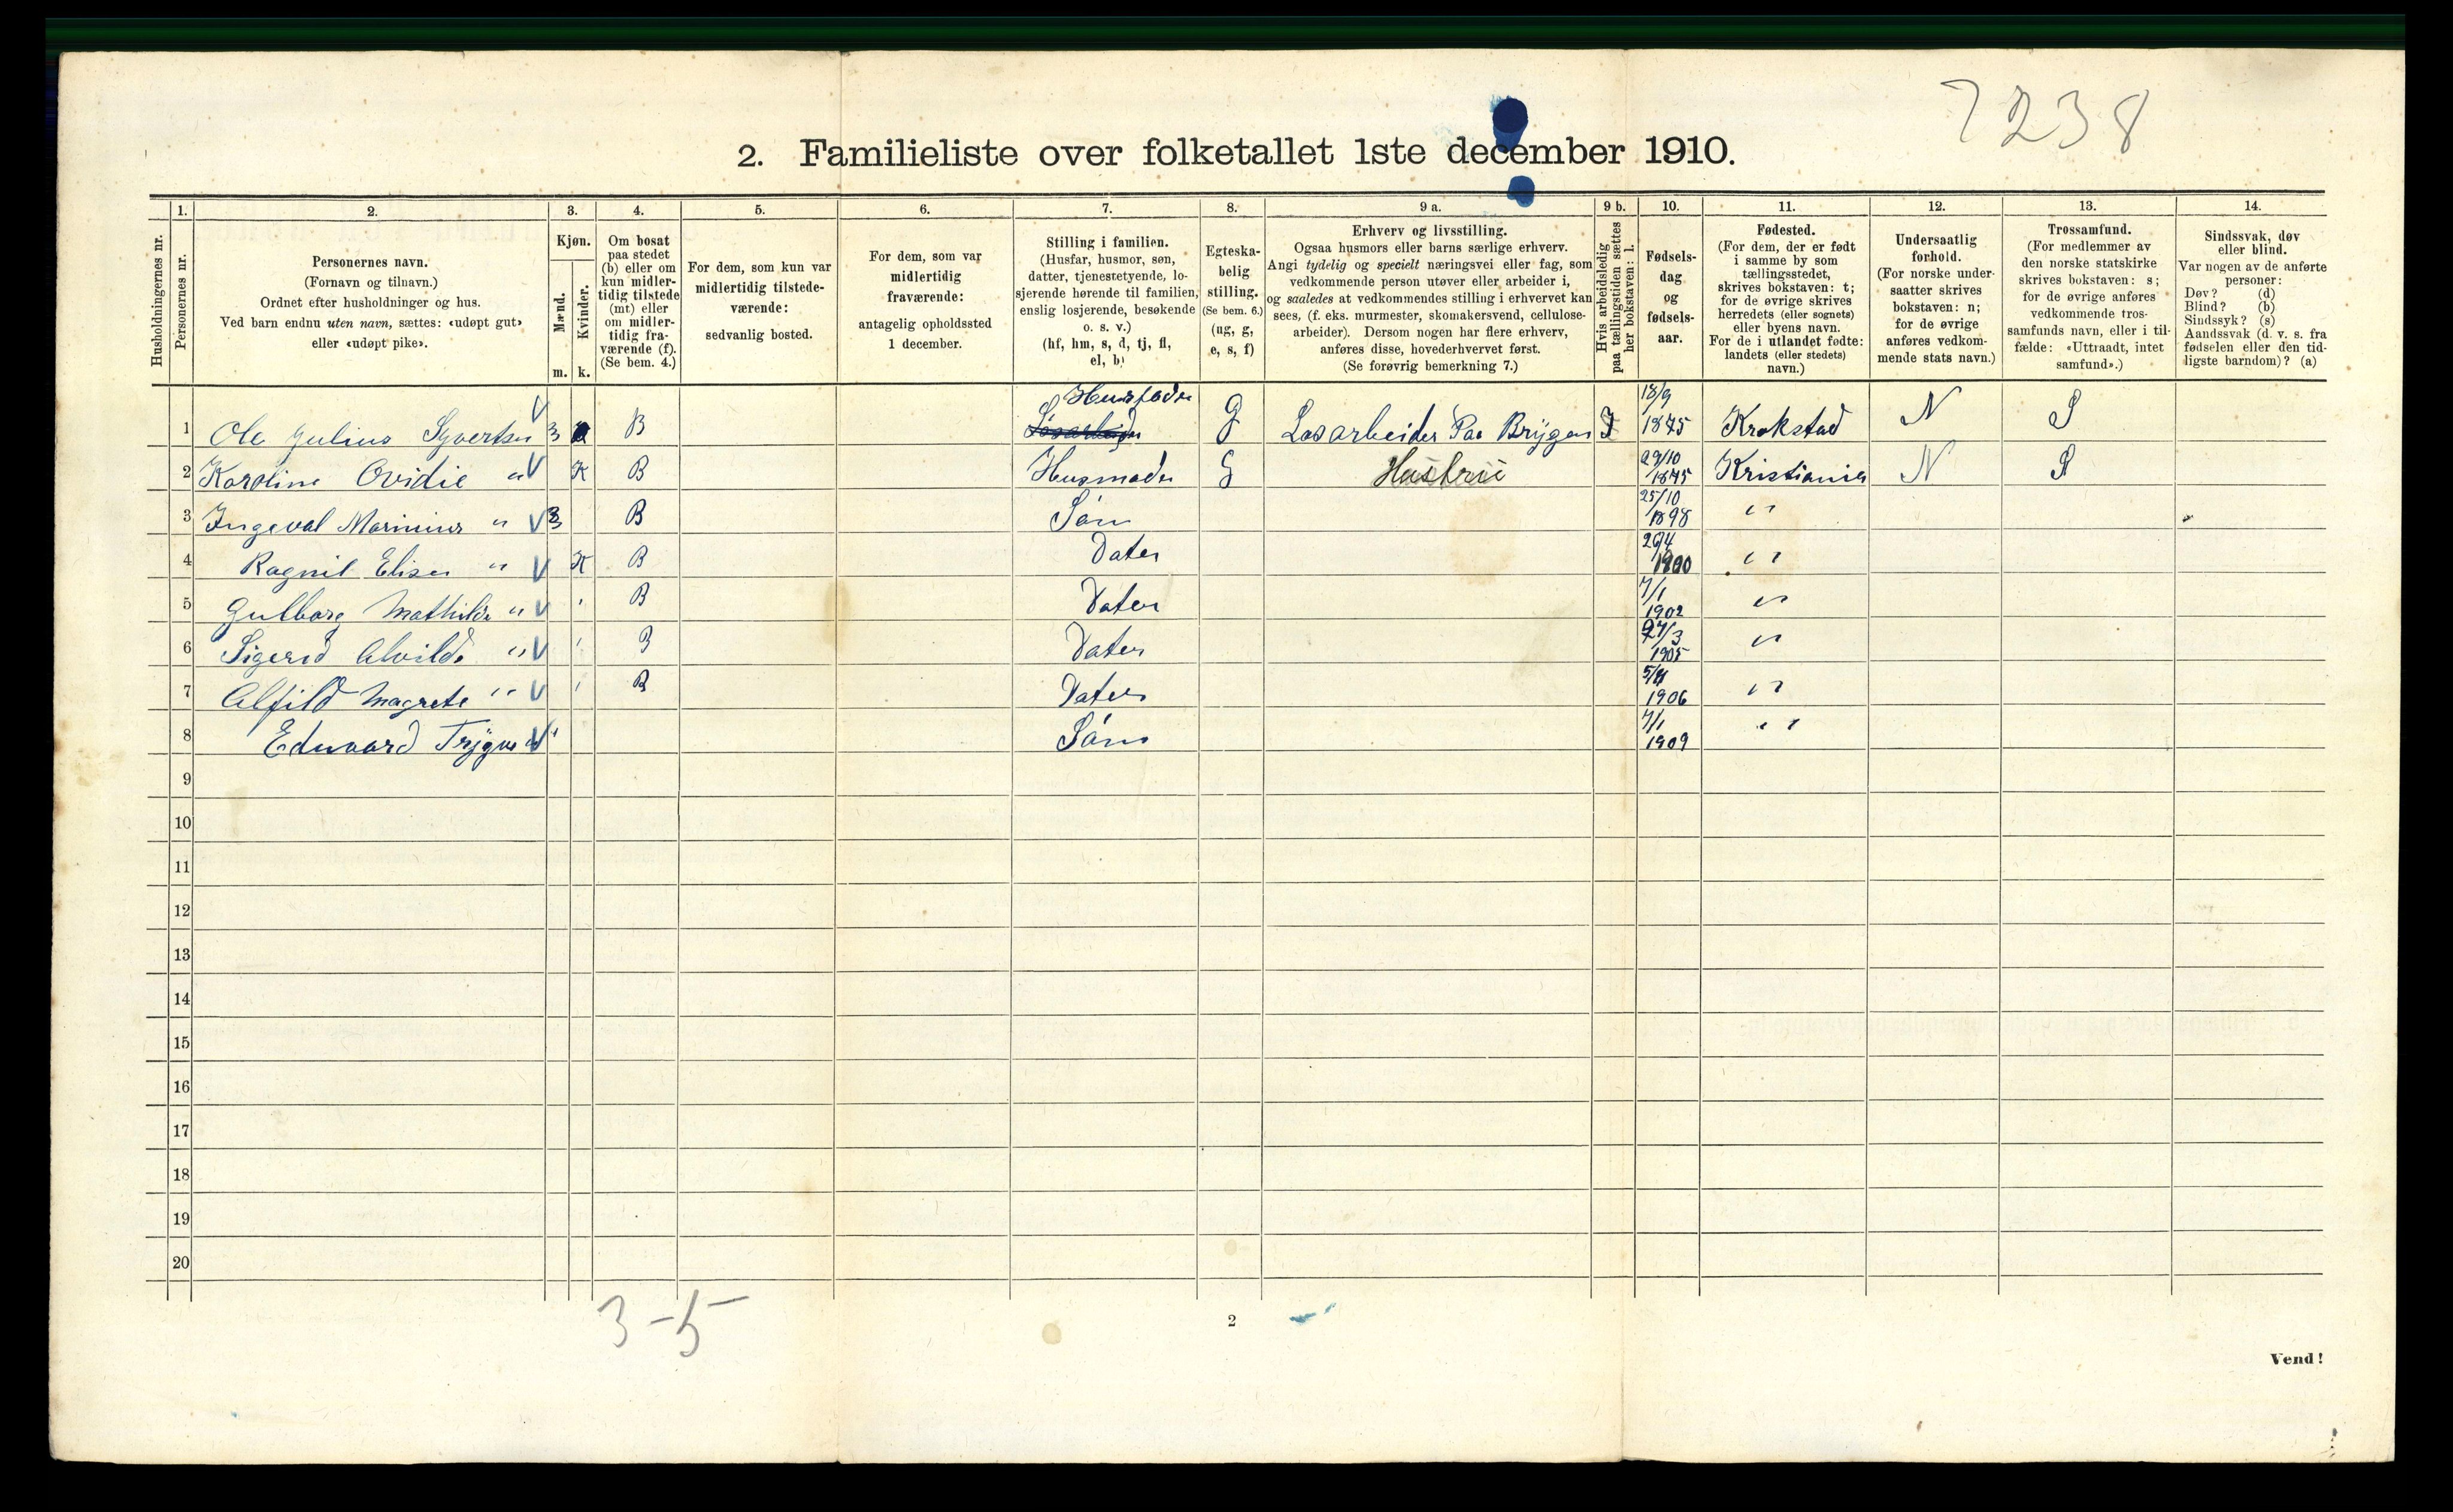 7238
2. Familieliste over folketallet 1ste december 1910.
1. 2. 3. 4. 5. 6. 7. 8. 9 a. 9 b. 10. 11. 12. 13. 14.
Husholdningernes nr.
Personernes nr.
Personernes navn.
(Fornavn og tilnavn.)
Ordnet efter husholdninger og hus.
Ved barn endnu uten navn, sættes: «udøpt gut»
eller «udøpt pike».
Kjøn.
Mænd.
Kvinder.
m. k.
Om bosat
paa stedet
(b) eller om
kun midler-
tidig tilstede
(mt) eller
om midler-
tidig fra-
værende (f).
(Se bem. 4.)
For dem, som kun var
midlertidig tilstede-
værende:
sedvanlig bosted.
For dem, som var
midlertidig
fraværende:
antagelig opholdssted
1 december.
Stilling i familien.
(Husfar, husmor, søn,
datter, tjenestetyende, lo-
sjerende hørende til familien,
enslig losjerende, besøkende
o. s. v.)
(hf, hm, s, d, tj, fl,
el, b)
Egteska-
belig
stilling.
(Se bem. 6.)
(ug, g,
e, s, f)
Erhverv og livsstilling.
Ogsaa husmors eller barns særlige erhverv.
Angi tydelig og specielt næringsvei eller fag, som
vedkommende person utøver eller arbeider i,
og saaledes at vedkommendes stilling i erhvervet kan
sees, (f. eks. murmester, skomakersvend, cellulose-
arbeider). Dersom nogen har flere erhverv,
anføres disse, hovederhvervet først.
(Se forøvrig bemerkning 7.)
Hvis arbeidsledig
paa tællingstiden sættes
her bokstaven: l.
Fødsels-
dag
og
fødsels-
aar.
Fødested.
(For dem, der er født
i samme by som
tællingsstedet,
skrives bokstaven: t;
for de øvrige skrives
herredets (eller sognets)
eller byens navn.
For de i utlandet fødte:
landets (eller stedets)
navn.)
Undersaatlig
forhold.
(For norske under-
saatter skrives
bokstaven: n;
for de øvrige
anføres vedkom-
mende stats navn.)
Trossamfund.
(For medlemmer av
den norske statskirke
skrives bokstaven: s;
for de øvrige anføres
vedkommende tros-
samfunds navn, eller i til-
fælde: «Uttraadt, intet
samfund».)
Sindssvak, døv
eller blind.
Var nogen av de anførte
personer:
Døv? (d)
Blind? (b)
Sindssyk? (s)
Aandssvak (d. v. s. fra
fødselen eller den tid-
ligste barndom)? (a)
1 Ole Julius Syvertsen V B Husfader G Losarbeider Paa Brygen 18/9 1875 Krokstad N S
2 Karoline Ovidie " V K B Husmoder G Hustrü 29/10 1875 Kristiania N S
3 Ingeval Marinius " V B Søn 25/10 1898 "
4 Ragnil Elise " V K B Dater 26/4 1900 "
5 Gulborg Mathilde " V " B Dater 7/1 1902 "
6 Sigerid Alvilde " V " B Dater 27/3 1905 "
7 Alfild Magrete " V " B Dater 1906 "
8 Edvaard Trygve " V Søn 7/1 1909 "
9
10
11
12
13
14
15
16
17
18
19
20
3-5
2
Vend!